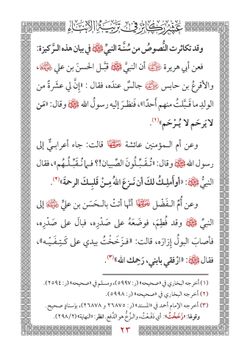 عشر ركائز في تربية الأبناء
وقد تكاثرت النُّصوصُ من سُنَّة النبيِّ ﷺ في بيان هذه الرَّكيزة:
فعن أبي هريرة رضي الله عنه أن النبيَّ ﷺ قبَّل الحسنَ بن عليٍّ رضي الله عنهما،
والأقرعُ بن حابس رضي الله عنه جالسٌ عنده، فقال : «إنَّ لي عشَرةً من
الولَدِ ما قَبَّلتُ منهم أحدًا»، فنظر إليه رسولُ الله ﷺ وقال: «مَن
لا يَرحَم لا يُرحَم»(١).
وعن أم المؤمنين عائشة رضي الله عنها قالت: جاء أعرابيٌّ إلى
رسول الله ﷺ وقال: «تُـقَـبِّـلُونَ الصِّبيان؟! فـمـا نُـقَـبِّـلُـهُم»، فقال
النبيُّ ﷺ: «أَوَأَملِـكُ لكَ أن نَـزَعَ اللهُ مِـنْ قَلبِـكَ الرحمةَ»(٢).
وعن أم الفـضْـل رضي الله عنها أنَّها أتتْ بالحَسَن بن عليٍّ إلى
النبيِّ ﷺ وقد فُطِمَ، فوضَعَهُ على صَدْرِه، فبال على صَدْرِه،
فأصابَ البولُ إزارَه، قالت: «فـزَخَخْتُ بيدي على كَـتِـفَـيْـه»،
فقال ﷺ: «ارْفقي بابنِي، رَحِمكِ الله»(٣).
(١) أخرجه البخاري في «صحيحه» (ر: ٥٩٩٧)، ومسلم في «صحيحه» (ر: ٢٥٩٤).
(٢) أخرجه البخاري في «صحيحه» (ر: ٥٩٩٨).
(٣) أخرجه الإمام أحمد في «المسند» (ر: ٢٦٨٧٥ و ٢٦٨٧٨)، بإسناد صحيح
وقولها: «زخَخْتُ»: أي دَفَعْتُ، والزَّخُّ هو الدَّفع. انظر: «النهاية» (٢٩٨/٢)
٢٣